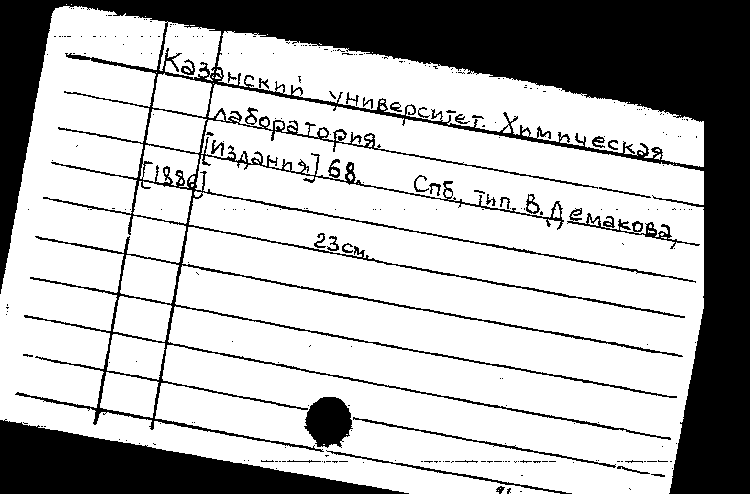 Казанский университет. Химическая
лаборатория.
[Издания] 68. Спб., тип. В. Демакова,
[1886].
23 см.